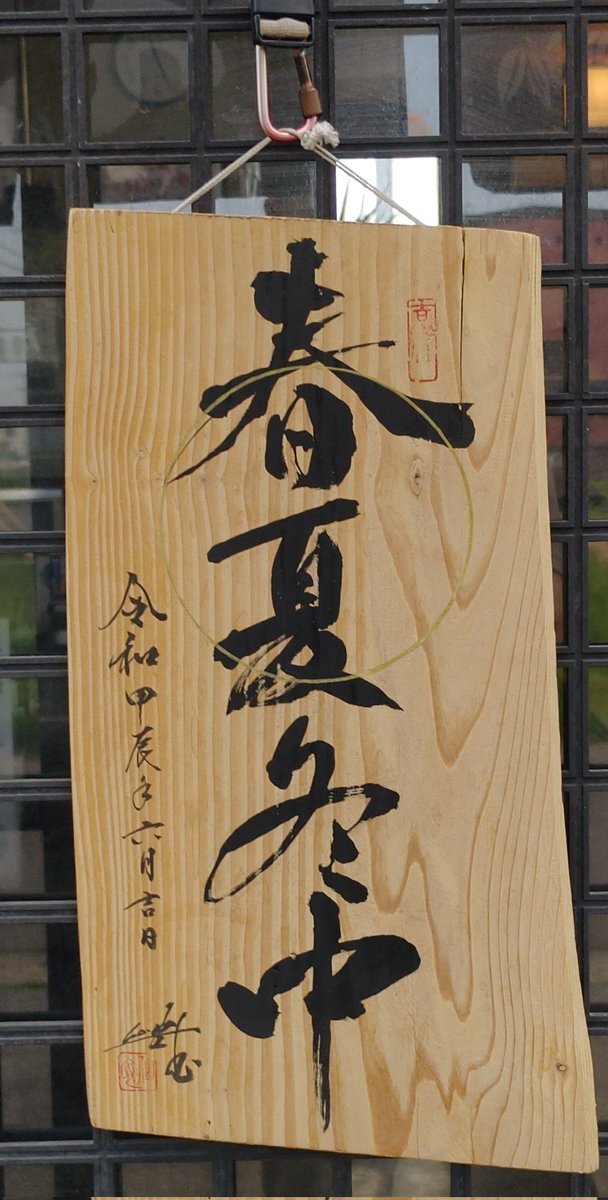 春夏冬中
令和甲辰年六月吉日